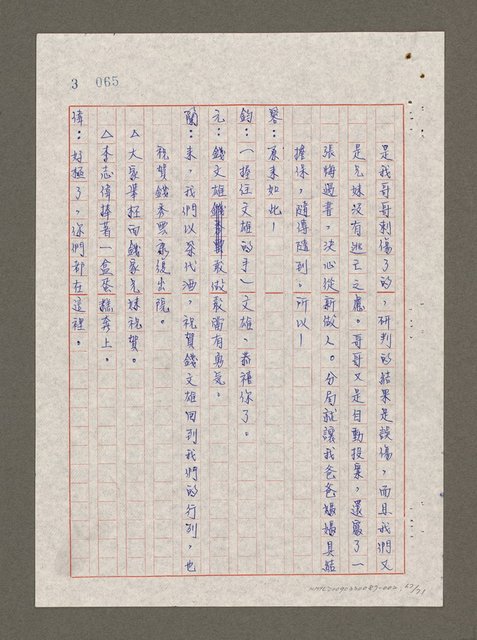 3 065
是我哥哥刺傷了的,研判的結果是誤傷,而且我們又
是兄妹沒有逃亡之慮。哥哥又是自動投案,還寫了一
張悔過書,決心從新做人。分局就讓我爸爸媽媽具結
擔保,隨傳隨到。所以—
磬:原來如此!
鈞:(握住文雄的手)文雄,恭禧你了。
元:錢文雄敢做敢當有勇氣。
蘭:來,我們以茶代酒,祝賀錢文雄回到我們的行列,也
祝賀錢秀雲康復出院。
△大家舉杯向錢家兄妹祝賀。
△李志偉捧著一盒蛋糕奔上。
偉:好極了,你們都在這裡。
NMTL20090220087-002
67/71